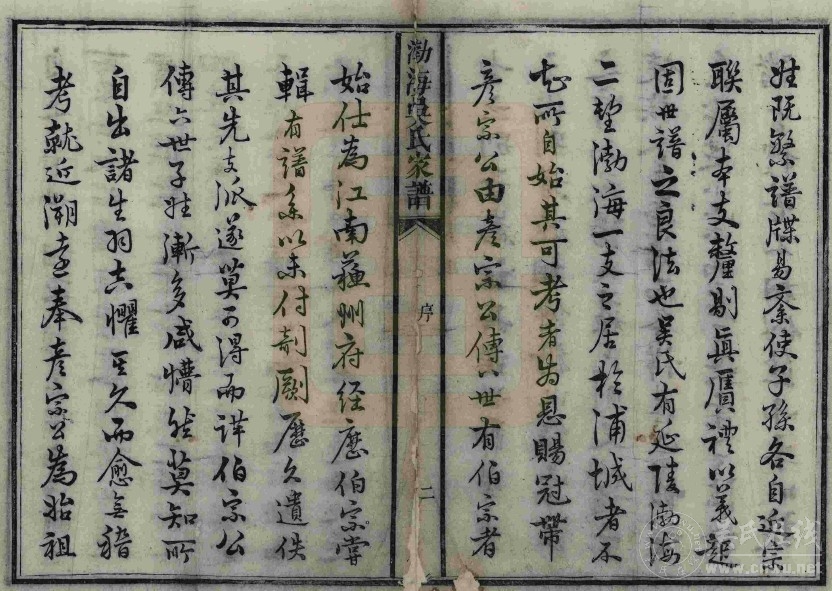 姓既繁譜牒易紊使子孫各自近宗
聯屬本支釐剔真贋禮以義起
固世譜之良法也吳氏有延陵渤海
二望渤海一支之居於浦城者不
知所自始其可考者為恩賜冠帶
彥宗公由彥宗公傳八世有伯宗者
渤海吳氏家譜
序
二
始仕為江南蘇州府經歷伯宗嘗
輯有譜系以未付剞劂歷久遺佚
其先支派遂莫可得而詳伯宗公
傳六世子姓漸多咸懵然莫知所
自出諸生羽吉懼其久而愈無稽
考就近溯遠奉彥宗公為始祖
吳氏在线